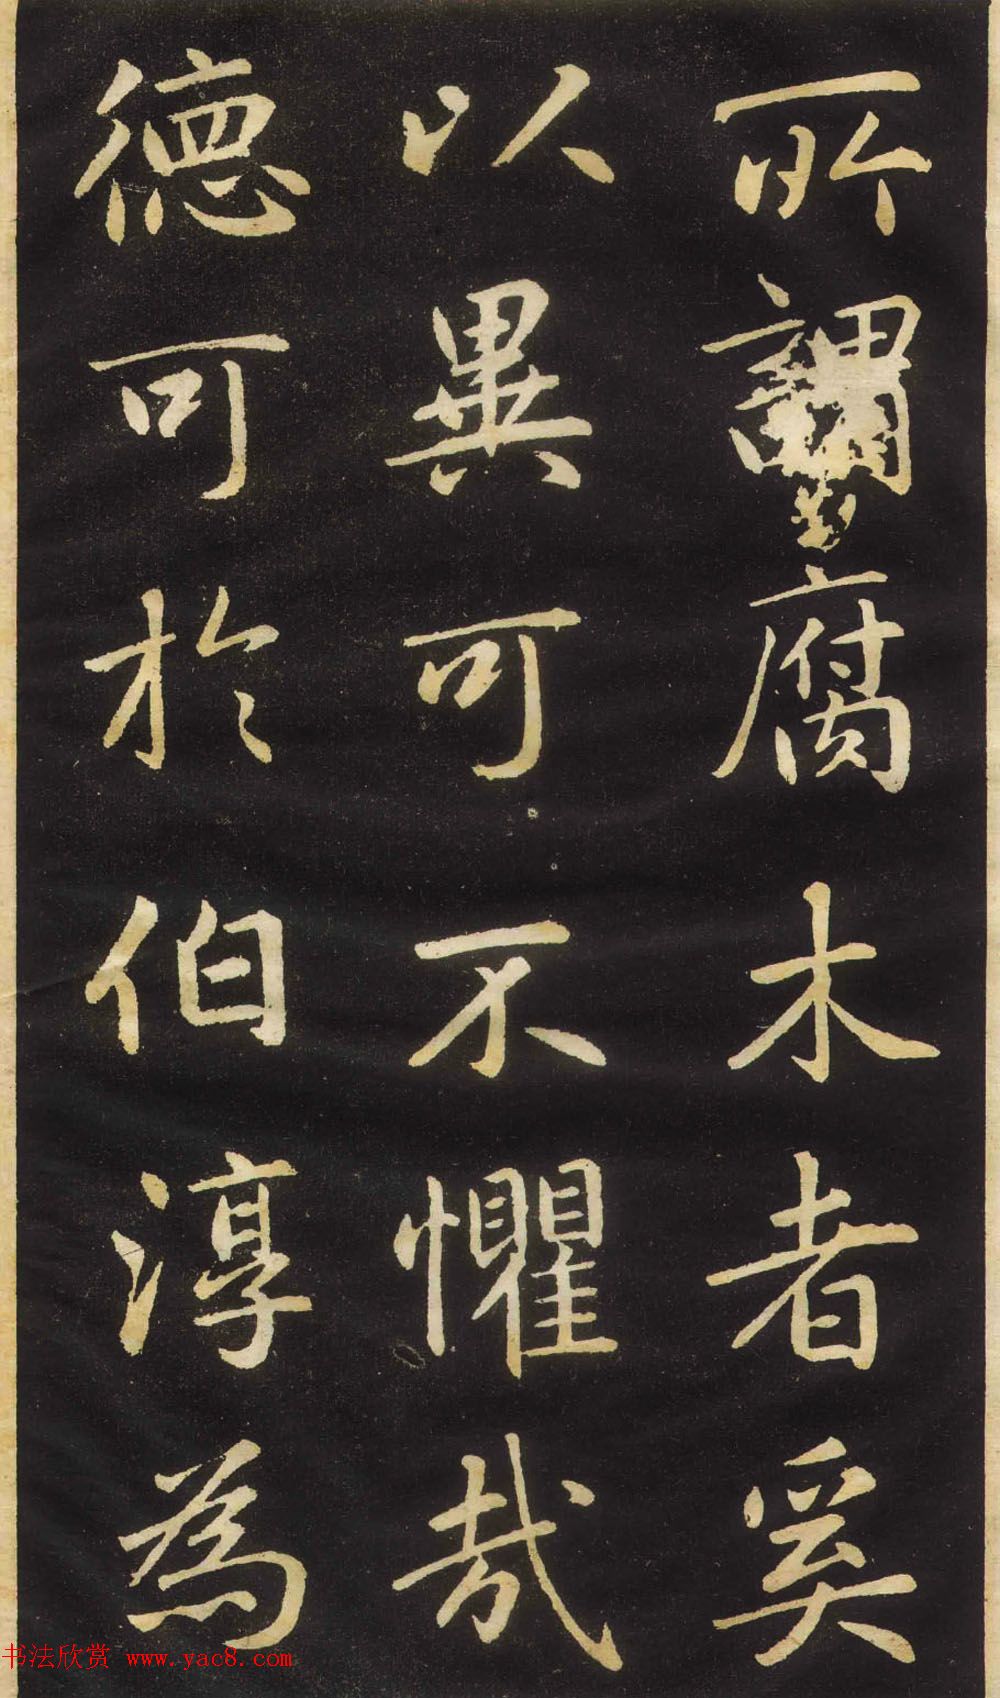 所謂腐木者奚
以異可不懼哉
德可於伯淳為
书法欣赏 www.yac8.com